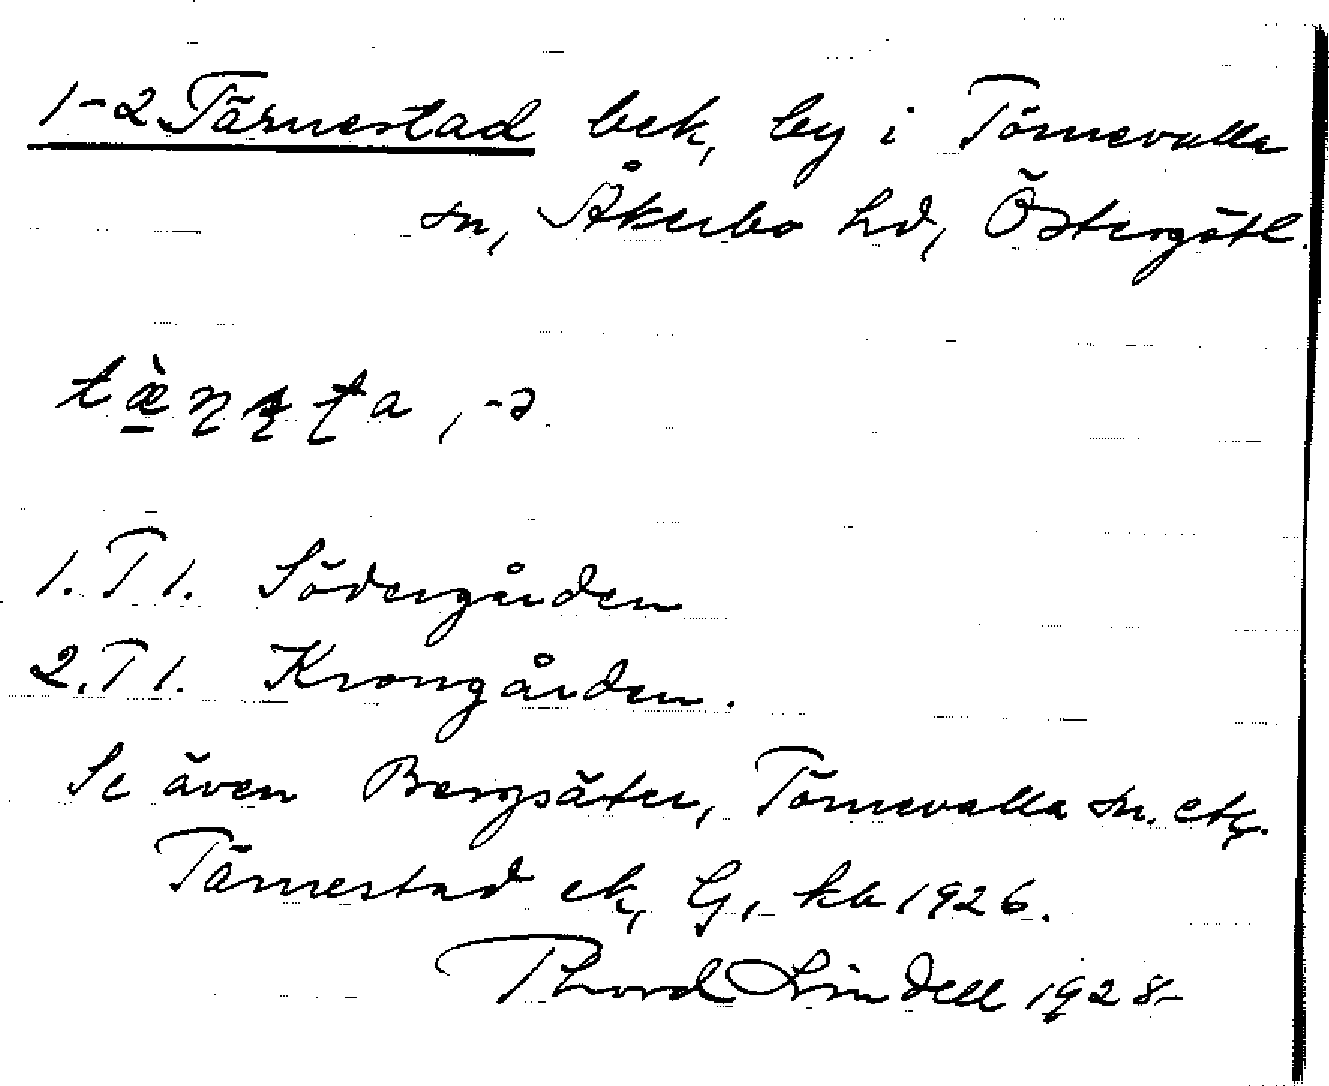 1-2 Tärnestad bek, by i Törnevalla
sn, Åkerbo hd, Östergötl.
1. T 1. Södergården
2. T 1. Krongården.
Se även Bergsäter, Törnevalla sn. ek,
Tärnestad ek, G, kb 1926.
Thord Lindell 1928